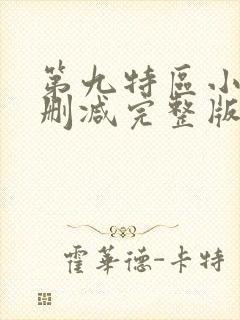 第九特區小
刪減完整版
霍華德-卡特